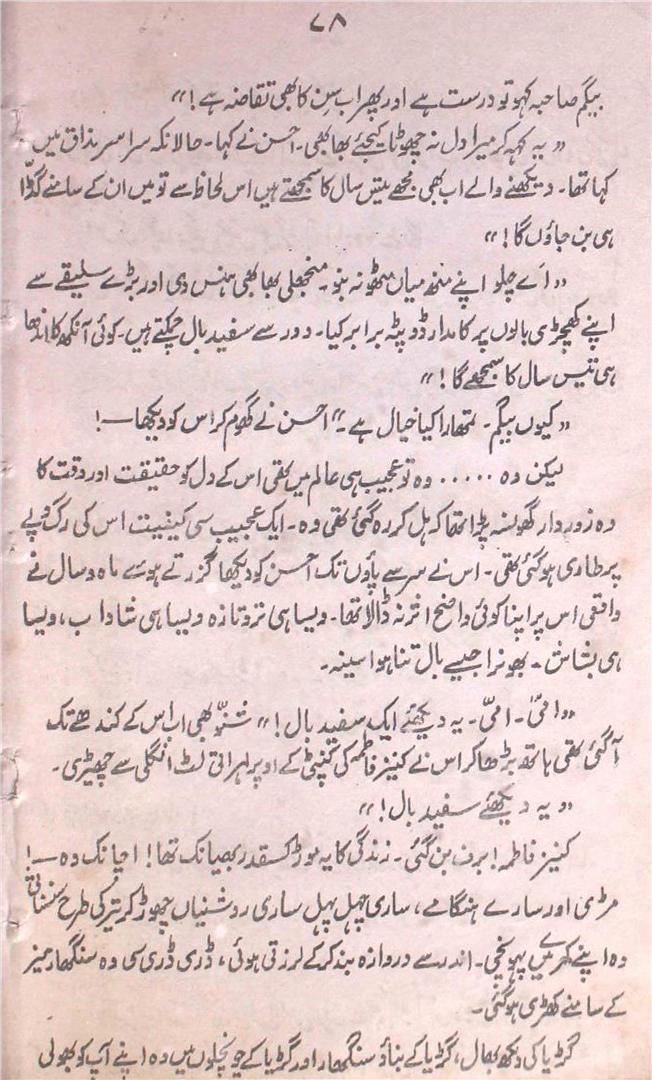 ۷۸
بیگم صاحبہ کہو تو درست ہے اور پھر اب سِن کا بھی تقاضہ ہے!“
”یہ کہہ کر میرا دل نہ چھوٹا کیجئے بھابھی۔ احسن نے کہا۔ حالانکہ سراسر مذاق میں
کہا تھا۔ دیکھنے والے اب بھی مجھے بتیس سال کا سمجھتے ہیں اس لحاظ سے تو میں ان کے سامنے گڈّا
ہی بن جاؤں گا!“
”اے چلو اپنے منھ میاں مٹھو نہ بنو۔ منجھلی بھابھی ہنس دی اور بڑے سلیقے سے
اپنے کھچڑی بالوں پر کامدار ڈوپٹہ برابر کیا۔ دور سے سفید بال چمکتے ہیں۔ کوئی آنکھ کا اندھا
ہی تیس سال کا سمجھے گا!“
”کیوں بیگم۔ تمھارا کیا خیال ہے۔“ احسن نے گھوم کر اس کو دیکھا—!
لیکن وہ ..... وہ تو عجیب ہی عالم میں تھی اس کے دل کو حقیقت اور وقت کا
وہ زور دار گھونسہ پڑا تھا کہ ہل کر رہ گئی تھی وہ۔ ایک عجیب سی کیفیت اس کی رگ و پے
پر طاری ہو گئی تھی۔ اس نے سر سے پاؤں تک احسن کو دیکھا گزرتے ہوئے ماہ و سال نے
واقعی اس پر اپنا کوئی واضح اثر نہ ڈالا تھا۔ ویسا ہی تر و تازہ ویسا ہی شاداب، ویسا
ہی بشاش۔ بھونرا جیسے بال تنا ہوا سینہ۔
”امّی۔ امّی۔ یہ دیکھئے ایک سفید بال!“ شنّو بھی اب اس کے کندھے تک
آ گئی تھی ہاتھ بڑھا کر اس نے کنیز فاطمہ کی کنپٹی کے اوپر لہراتی لٹ انگلی سے چھیڑی۔
”یہ دیکھئے سفید بال!“
کنیز فاطمہ! برف بن گئی۔ زندگی کا یہ موڑ کسقدر بھیانک تھا! اچانک وہ—!
مڑی اور سارے ہنگامے، ساری چہل پہل ساری روشنیاں چھوڑ کر تیر کی طرح سنسناتی
وہ اپنے کمرے میں پہونچی۔ اندر سے دروازہ بند کر کے لرزتی ہوئی، ڈری ڈری سی وہ سنگھار میز
کے سامنے کھڑی ہو گئی۔
گڑیا کی دیکھ بھال، گڑیا کے بناؤ سنگھار اور گڑیا کے چونچلوں میں وہ اپنے آپ کو بھولی